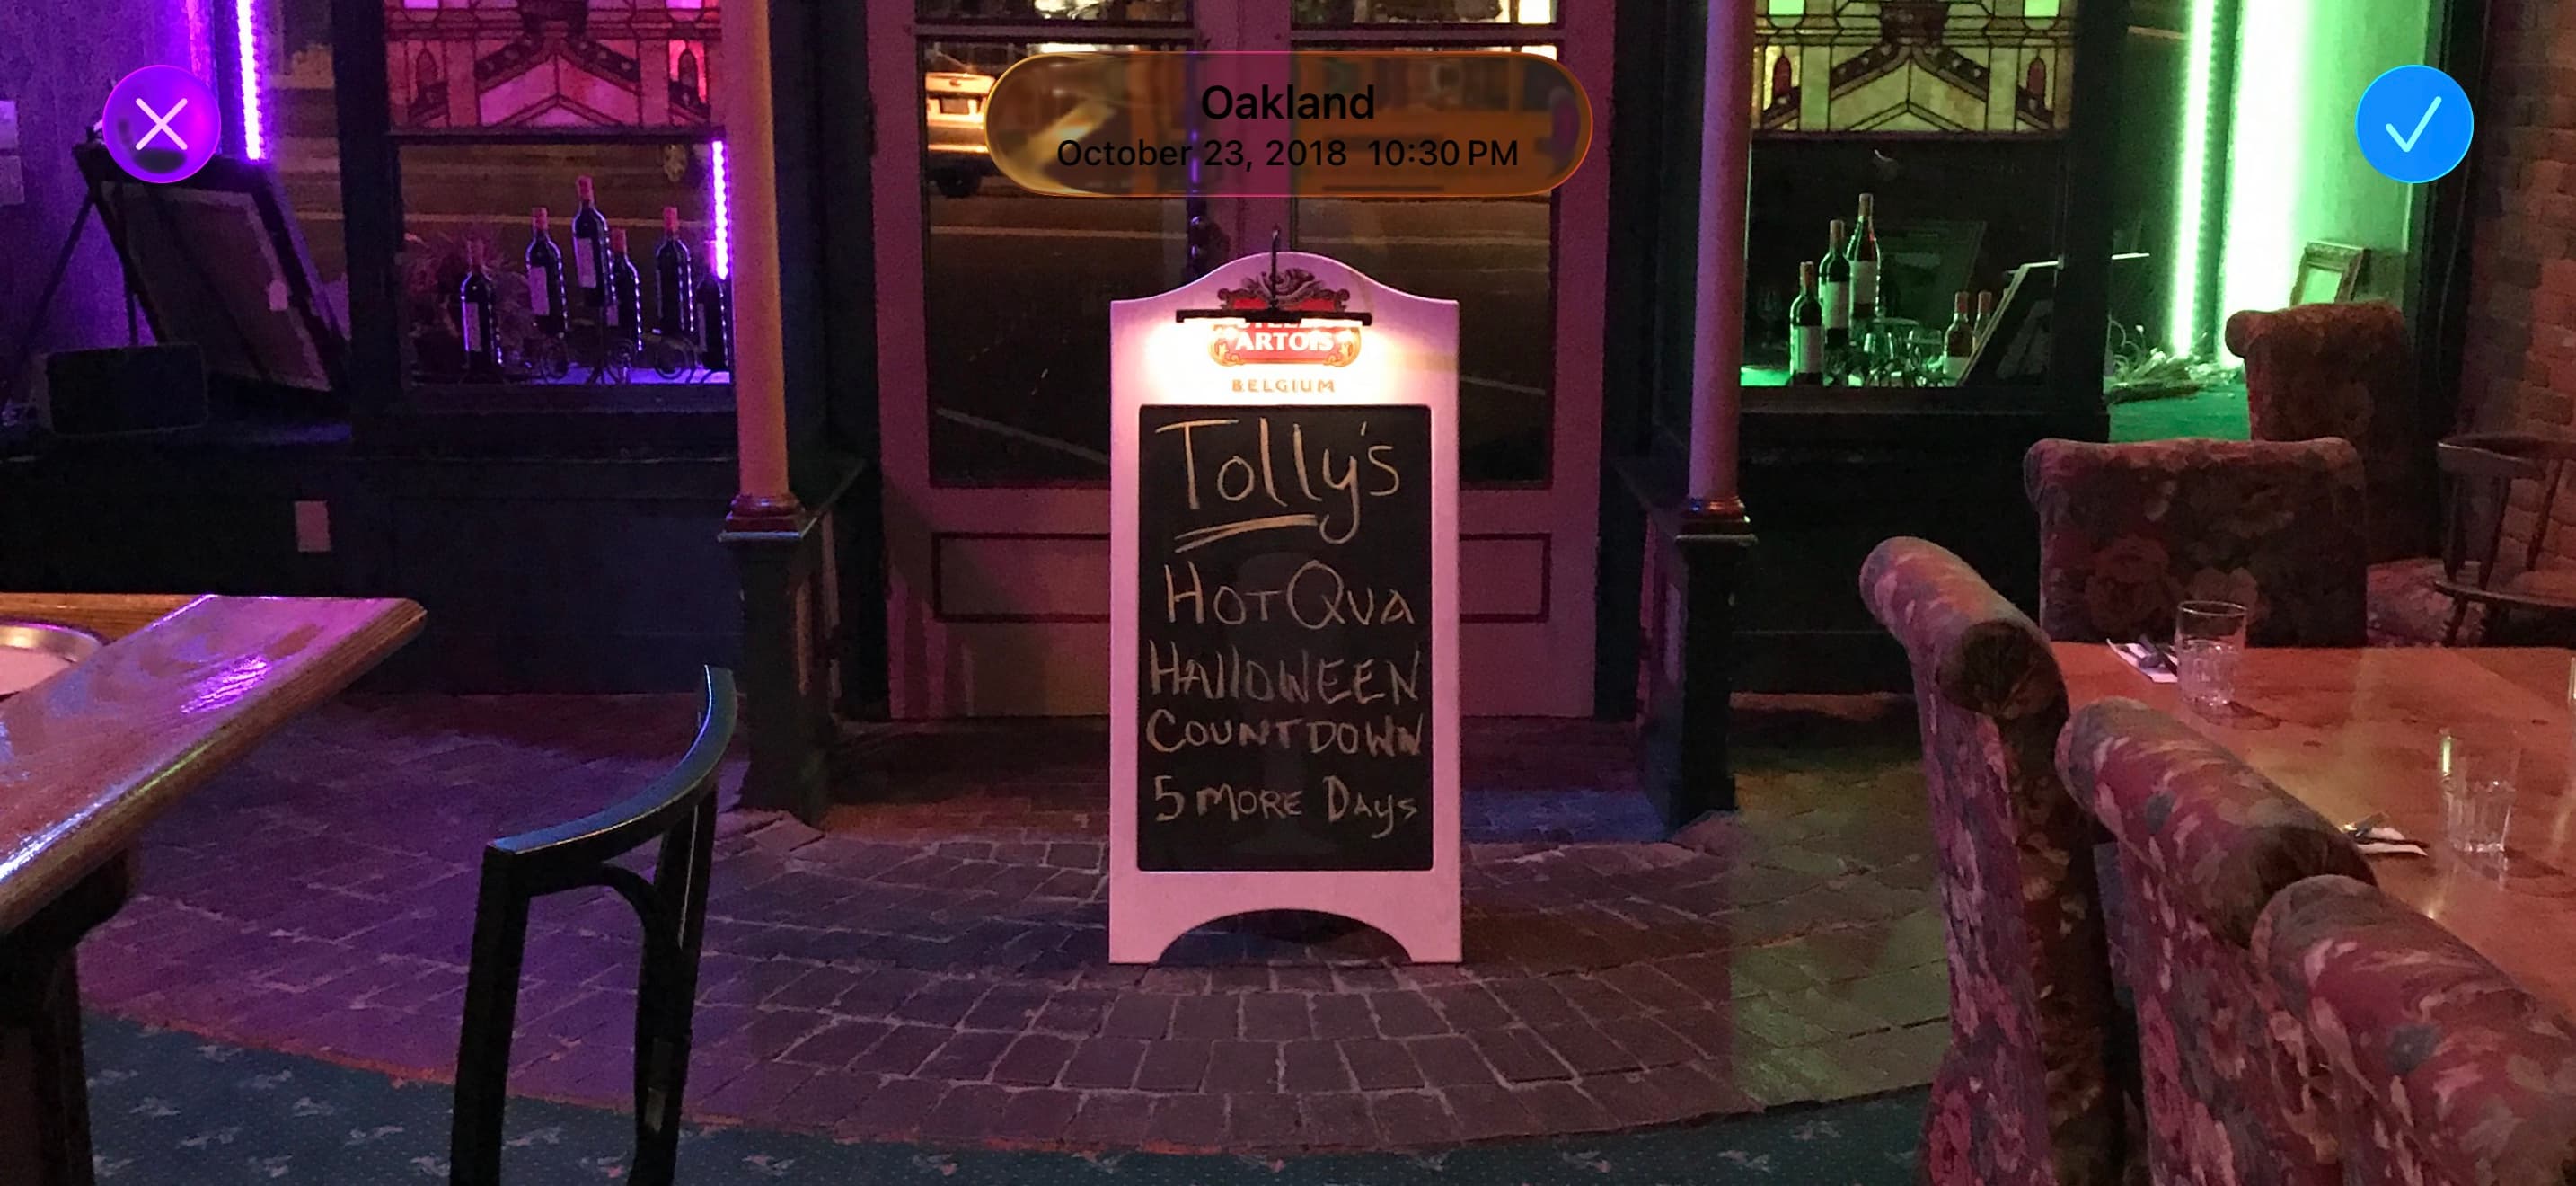 Oakland
October 23, 2018 10:30 PM
ARTOIS
BELGIUM
Tolly's
HOTQUA
HALLOWEEN
COUNTDOWN
5 MORE DAYS